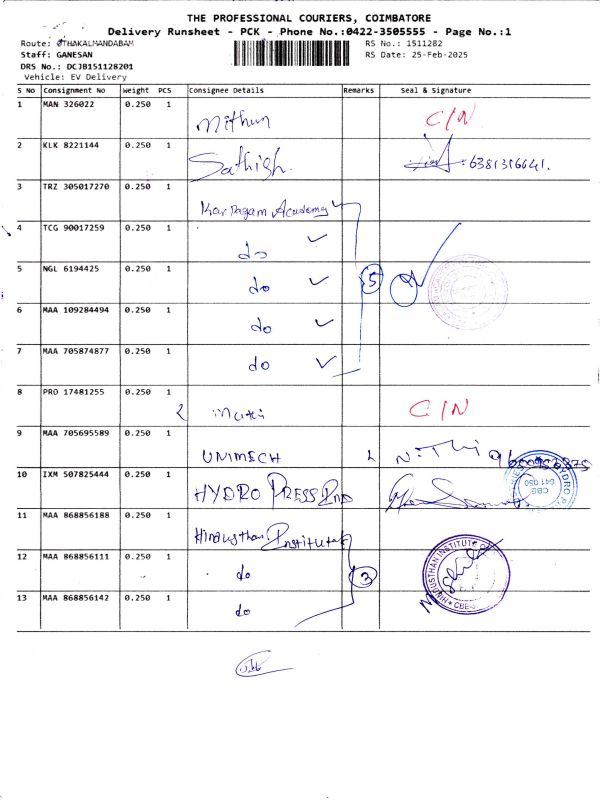 THE PROFESSIONAL COURIERS, COIMBATORE
Delivery Runsheet - PCK - Phone No.:0422-3505555 - Page No.:1
Route: OTHAKALMANDABAM
RS No.: 1511282
Staff: GANESAN
RS Date: 25-Feb-2025
DRS No.: DCJB151128201
Vehicle: EV Delivery
S No Consignment No Weight PCS Consignee Details Remarks Seal & Signature
1 MAN 326022 0.250 1 Mithun C/N
2 KLK 8221144 0.250 1 Sathish 6381316641.
3 TRZ 305017270 0.250 1 Karpagam Academy
4 TCG 90017259 0.250 1 do
5 NGL 6194425 0.250 1 do 5
6 MAA 109284494 0.250 1 do
7 MAA 705874877 0.250 1 do
8 PRO 17481255 0.250 1 C/N
9 MAA 705695589 0.250 1 UNIMECH
10 IXM 507825444 0.250 1 HYDRO PRESS IND
CBE
641 050
11 MAA 868856188 0.250 1 Hindusthan Institute
12 MAA 868856111 0.250 1 do 3
HINDUSTHAN INSTITUTE
CBE
13 MAA 868856142 0.250 1 do